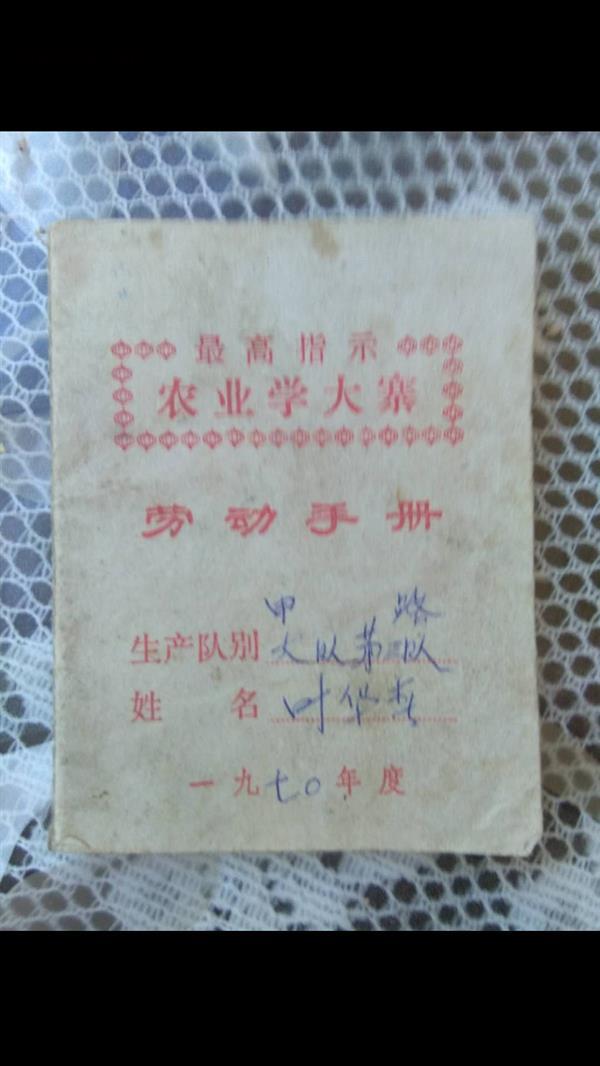 最高指示
农业学大寨
劳动手册
甲路
生产队别 大队第三队
姓名 叶华
一九七〇年度